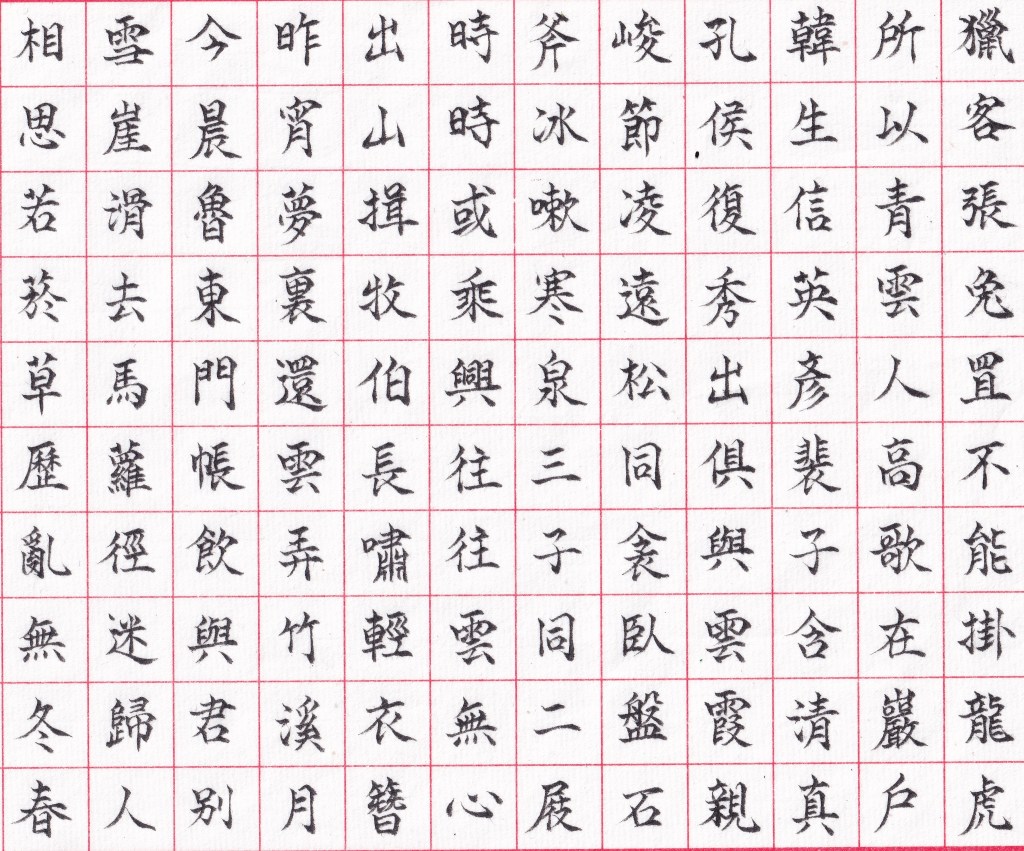 獵客張兔罝不能掛龍虎
所以青雲人高歌在巖戶
韓生信英彥裴子含清真
孔侯復秀出俱與雲霞親
峻節凌遠松同衾臥盤石
斧冰嗽寒泉三子同二展
時時或乘興往往雲無心
出山揖牧伯長嘯輕衣簪
昨宵夢裏還雲弄竹溪月
今晨魯東門帳飲與君別
雪崖滑去馬蘿徑迷歸人
相思若菸草歷亂無冬春